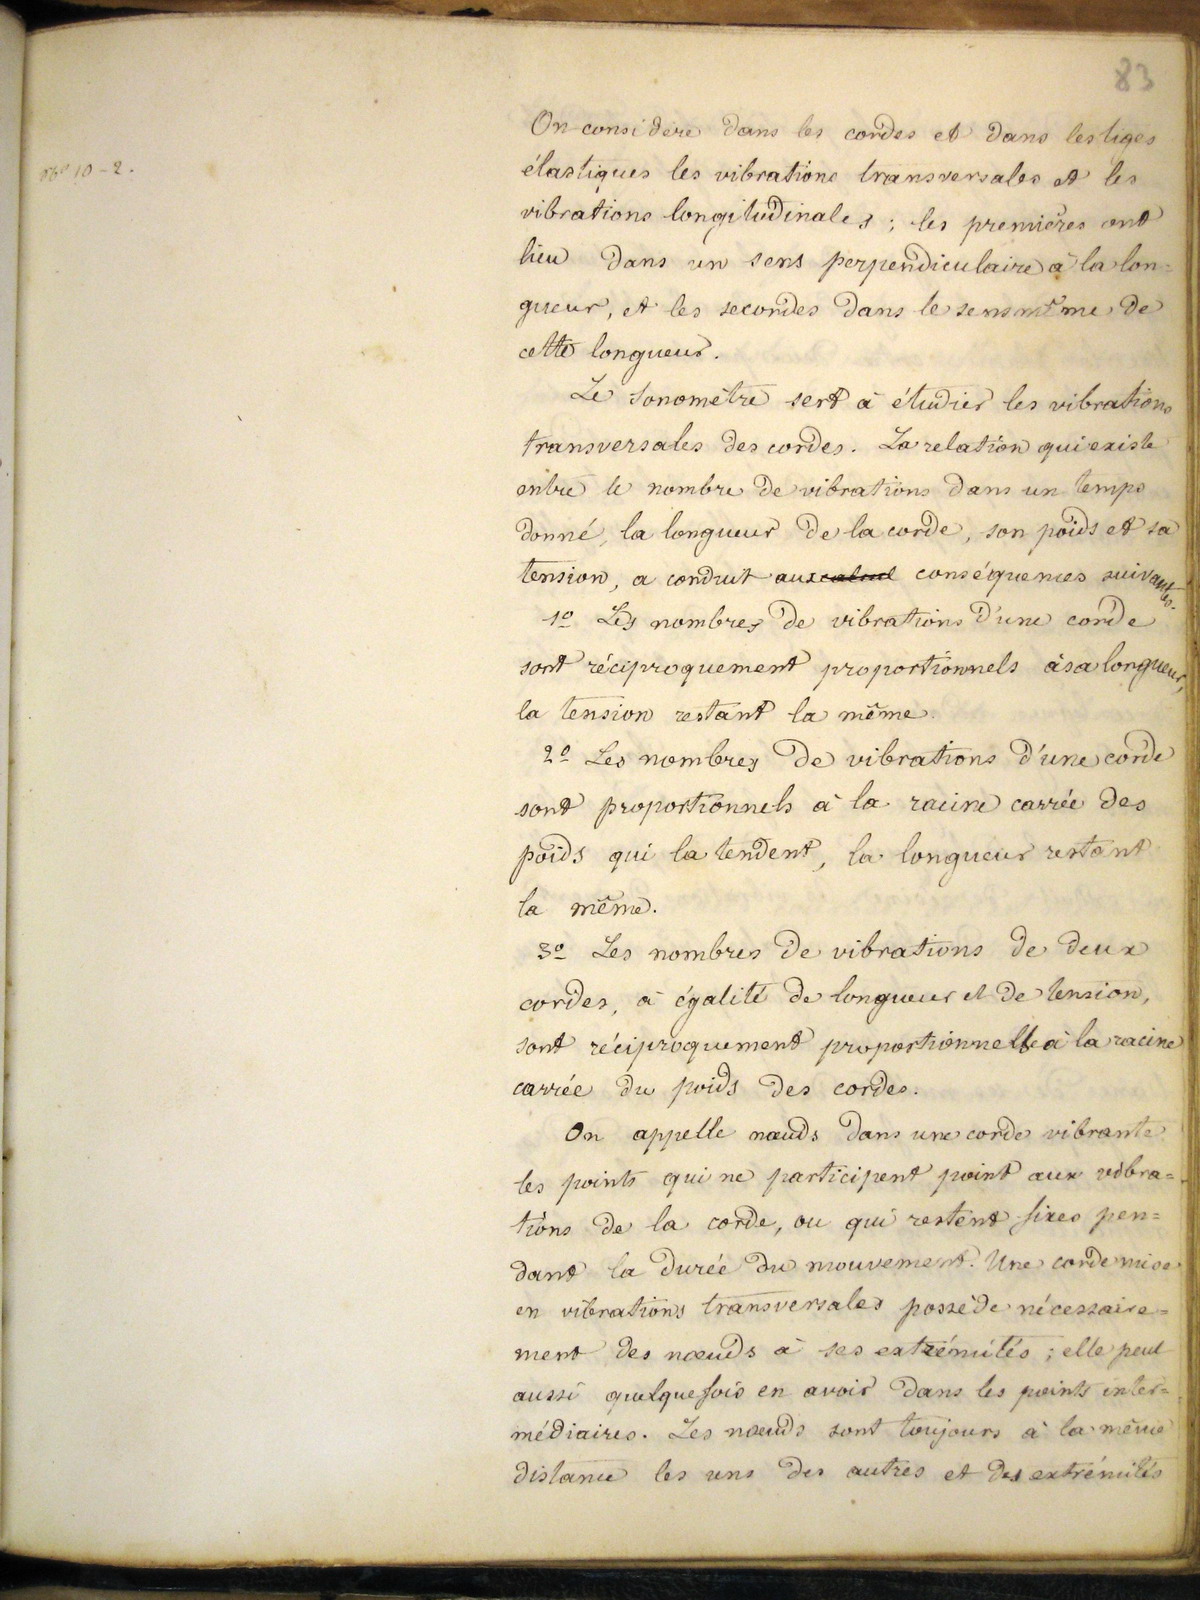 83
On considère dans les cordes et dans les tiges
10-2.
élastiques les vibrations transversales et les
vibrations longitudinales ; les premières ont
lieu dans un sens perpendiculaire à la lon=
gueur, et les secondes dans le sens même de
cette longueur.
Le Sonomètre sert à étudier les vibrations
transversales des cordes. La relation qui existe
entre le nombre de vibrations dans un temps
donné, la longueur de la corde, son poids et sa
tension, a conduit aux calcul conséquences suivantes.
1º Les nombres de vibrations d'une corde
sont réciproquement proportionnels à sa longueur,
la tension restant la même.
2º Les nombres de vibrations d'une corde
sont proportionnels à la racine carrée des
poids qui la tendent, la longueur restant
la même.
3º Les nombres de vibrations de deux
cordes, à égalité de longueur et de tension,
sont réciproquement proportionnelle à la racine
carrée du poids des cordes.
On appelle nœuds dans une corde vibrante
les points qui ne participent point aux vibra=
tions de la corde, ou qui restent fixes pen=
dant la durée du mouvement. Une corde mise
en vibrations transversales possède nécessaire=
ment des nœuds à ses extrémités ; elle peut
aussi quelquefois en avoir dans les points inter=
médiaires. Les nœuds sont toujours à la même
distance les uns des autres et des extrémités